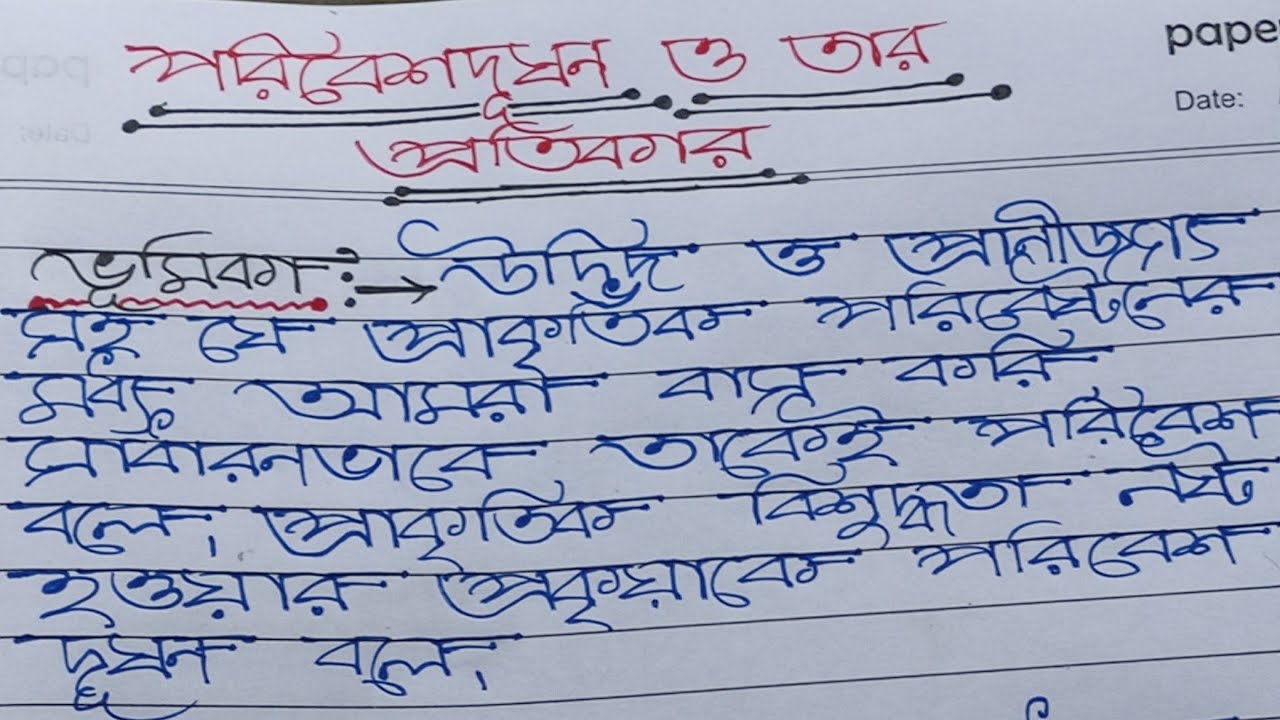 pape
Date:
পরিবেশদূষন ও তার
প্রতিকার
ভূমিকা :→ উদ্ভিদ ও প্রানীজগৎ
সহ যে প্রাকৃতিক পরিবেষ্টনের
মধ্যে আমরা বাস করি
সাধারনভাবে তাকেই পরিবেশ
বলে। প্রাকৃতিক বিশুদ্ধতা নষ্ট
হওয়ার প্রকৃয়াকে পরিবেশ
দূষন বলে।